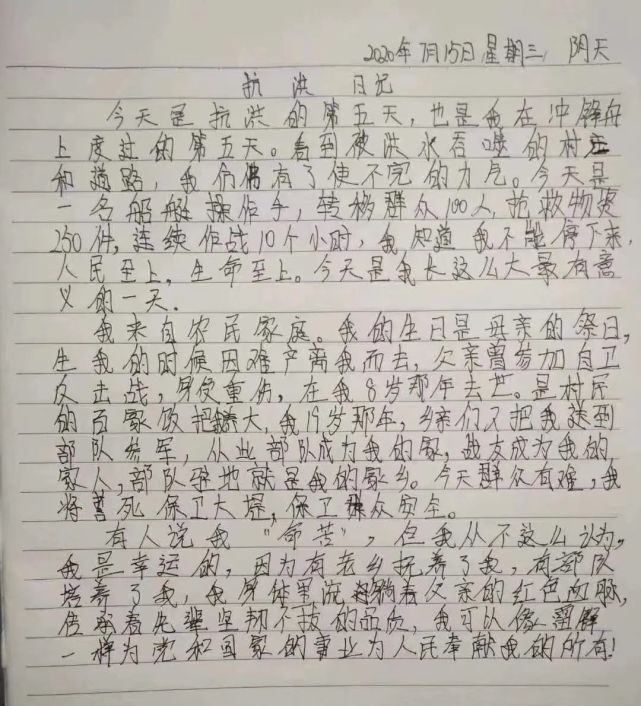 2020年7月15日 星期三 阴天
抗洪 日记
今天是抗洪的第五天,也是我在冲锋舟
上度过的第五天。看到被洪水吞噬的村庄
和道路,我们有了使不完的力气。今天是
一名船艇操作手,转移群众100人,抢救物资
250件,连续作战10个小时,我知道我不能停下来,
人民至上,生命至上。今天是我长这么大最有意
义的一天.
我来自农民家庭。我的生日是母亲的祭日,
生我的时候因难产离我而去,父亲曾参加自卫
反击战,身受重伤,在我8岁那年去世。是村民
的百家饭把我养大,我19岁那年,乡亲们又把我送到
部队参军,从此部队成为我的家,战友成为我的
家人,部队驻地就是我的家乡。今天群众有难,我
将誓死保卫大堤,保卫群众安全。
有人说我“命苦”,但我从不这么认为,
我是幸运的,因为有老乡抚养了我,有部队
培养了我,我身体里流淌着父亲的红色血脉,
传承着先辈坚韧不拔的品质,我可以像
一样为党和国家的事业为人民奉献我的所有!